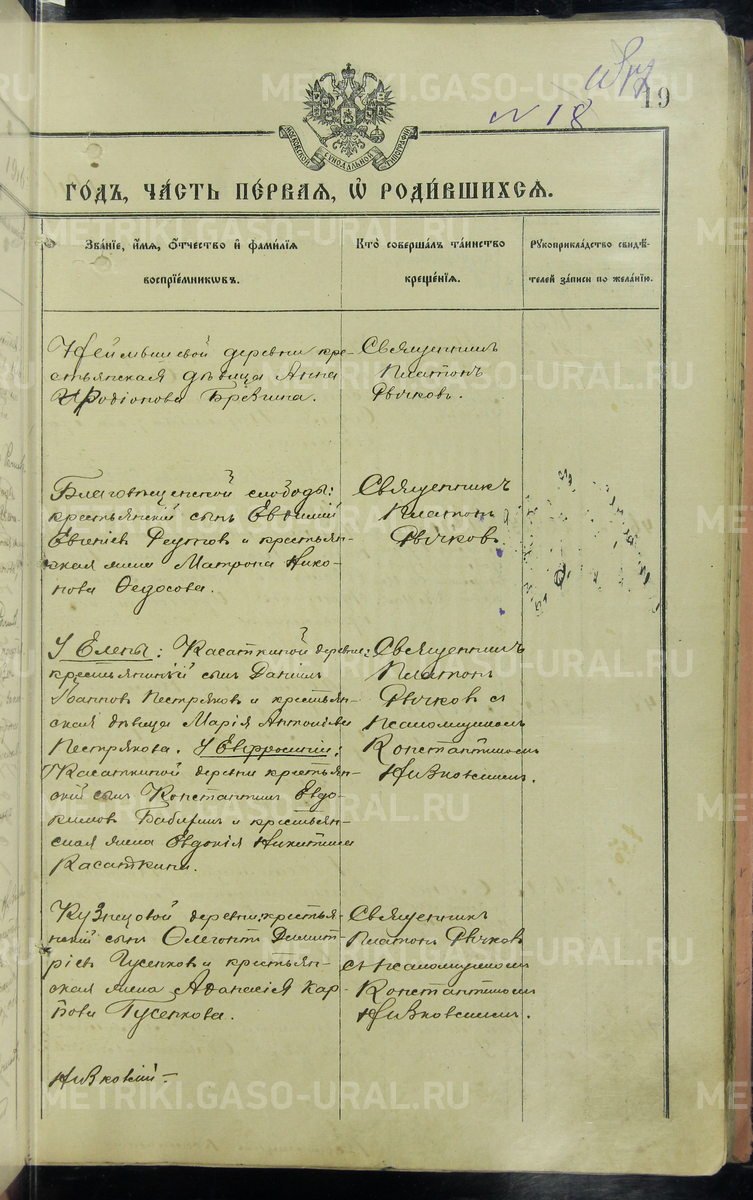 N 18
19
МОСКОВСКОЙ СУНОДАЛЬНОЙ ТИПОГРАФІИ
ГОДЪ, ЧАСТЬ ПЕРВАЯ, Ѡ РОДИВШИХСЯ.
Званіе, имя, отчество и фамилія воспріемниковъ.
Кто совершалъ таинство крещенія.
Рукоприкладство свидѣтелей записи по желанію.
деревни кре-
стьянская дѣвица Анна
Иродіонова Брякина.
Священникъ
Платонъ
Рычковъ.
Благовѣщенской слободы:
крестьянскій сынъ Евѳимій
Евгеніев Реутов и крестьян-
ская жена Матрона Нико-
нова Ѳедосова.
Священникъ
Платон
Рычков.
У Елены: Касаткиной деревни:
крестьянскій сын Даніил
Іоаннов Пестряков и крестьян-
ская дѣвица Марія Антоніева
Пестрякова. У Евфросиніи:
Касаткиной деревни крестьян-
скій сын Константин Евдо-
кимов Бабкин и крестьян-
ская жена Евдокія Никитина
Касаткина.
Священникъ
Платон
Рычков с
псаломщиком
Константином
Низковским.
Кузнецовой деревни: крестья-
нскій сын Ѳлегонт Димит-
ріев Гусенков и крестьян-
ская жена Аѳанасія Кар-
пова Гусенкова.
Священник
Платон Рычков
с псаломщиком
Константином
Низковским.
Низковскій
METRIKI.GASO-URAL.RU